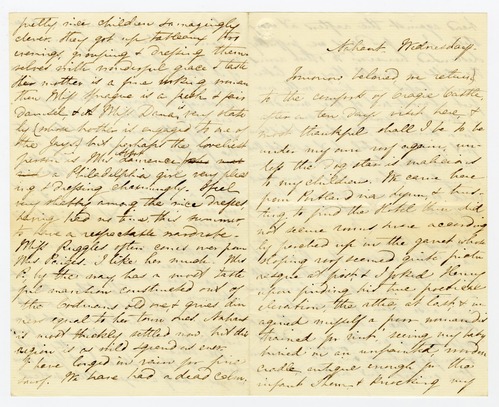 pretty nice children & amazingly
clever. they got up tableaux two
evenings, jumping & dressing them
selves with wonderful grace & taste
their mother is a fine looking woman
then Miss Sprague is a fresh & fair
damsel, & a Miss Dana, very state
ly (whose brother is engaged to one of
the Jays) but perhaps the loveliest
person is Mrs Lawrence
a Philadelphia girl very pleas
ing & dressing charmingly. I feel
very shabby among the nice dresses
having had no time this summer
to have a respectable wardrobe.
Miss Ruggles often comes over from
Mrs Paige's. I like her much. Mrs
P. by the way has a most taste
ful mansion constructed out of
the Codmans old one & gives din
ners equal to her town ones. Nahant
is most thickly settled now, but this
region is as wild & grand as ever.
We have longed in vain for fine
surf. We have had a dead calm,
Nahant Wednesday.
Tomorrow beloved we return
to the comfort of Craigie Castle,
after a ten days visit here, &
most thankful shall I be to be
under my own roof again, un
less the dog star is malicious
to my children. We came here
from Rutland via Lynn, & trus
ting to find the Hotel thin did
not secure rooms & were according
ly perched up in the garret whose
sloping roof seemed quite pictu
resque at first & I joked Henry
upon finding his true poetical
elevation the attic at last & im
agined myself a poor woman di
strained for rent, seeing my baby
buried in an unpainted wooden
cradle, antique enough for the
infant Shem & knocking my